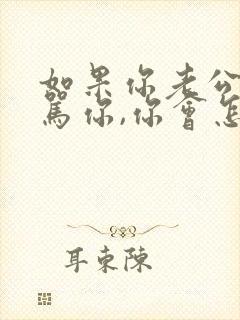 如果你老公
骂你,你會怎
耳東陳